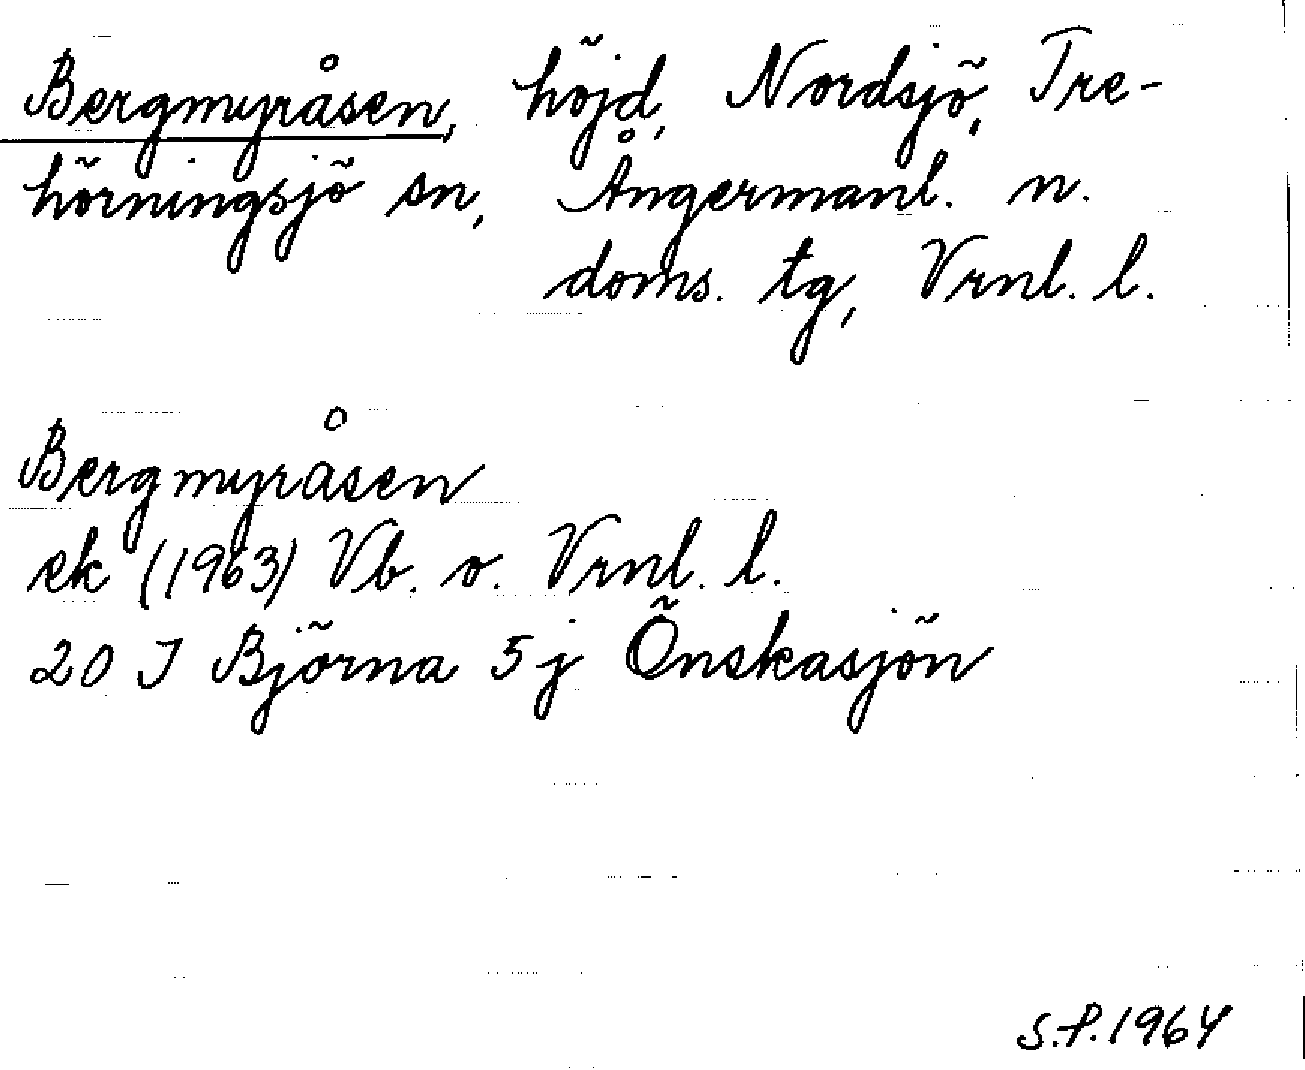 Bergmyråsen, höjd, Nordsjö, Tre-
hörningsjö sn, Ångermanl. n.
doms. tg, Vrnl. l.
Bergmyråsen
ek (1963) Vb. o. Vrnl. l.
20 I Björna 5 j Önskasjön
S.P. 1964